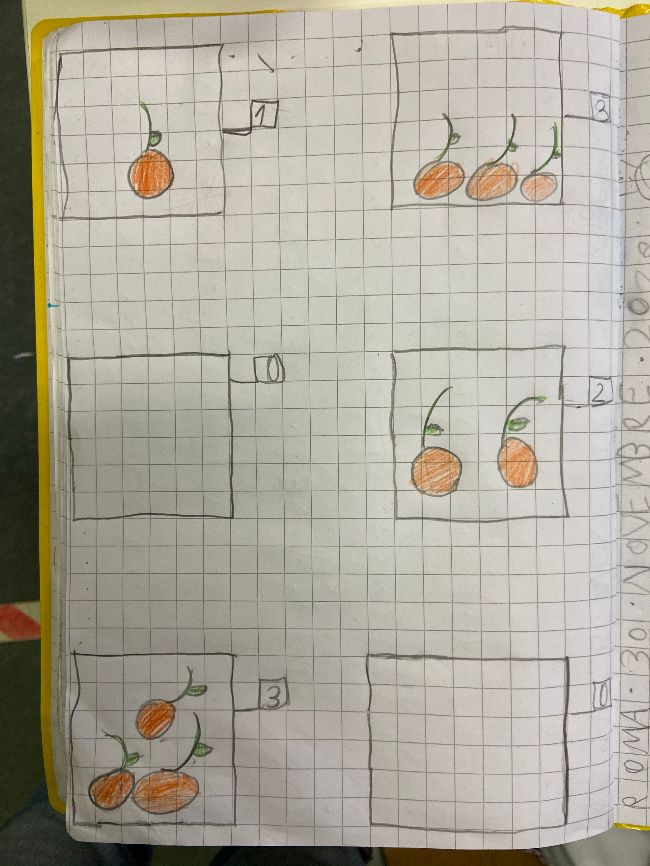 1
3
0
2
3
0
ROMA·30·NOVEMBRE·2020